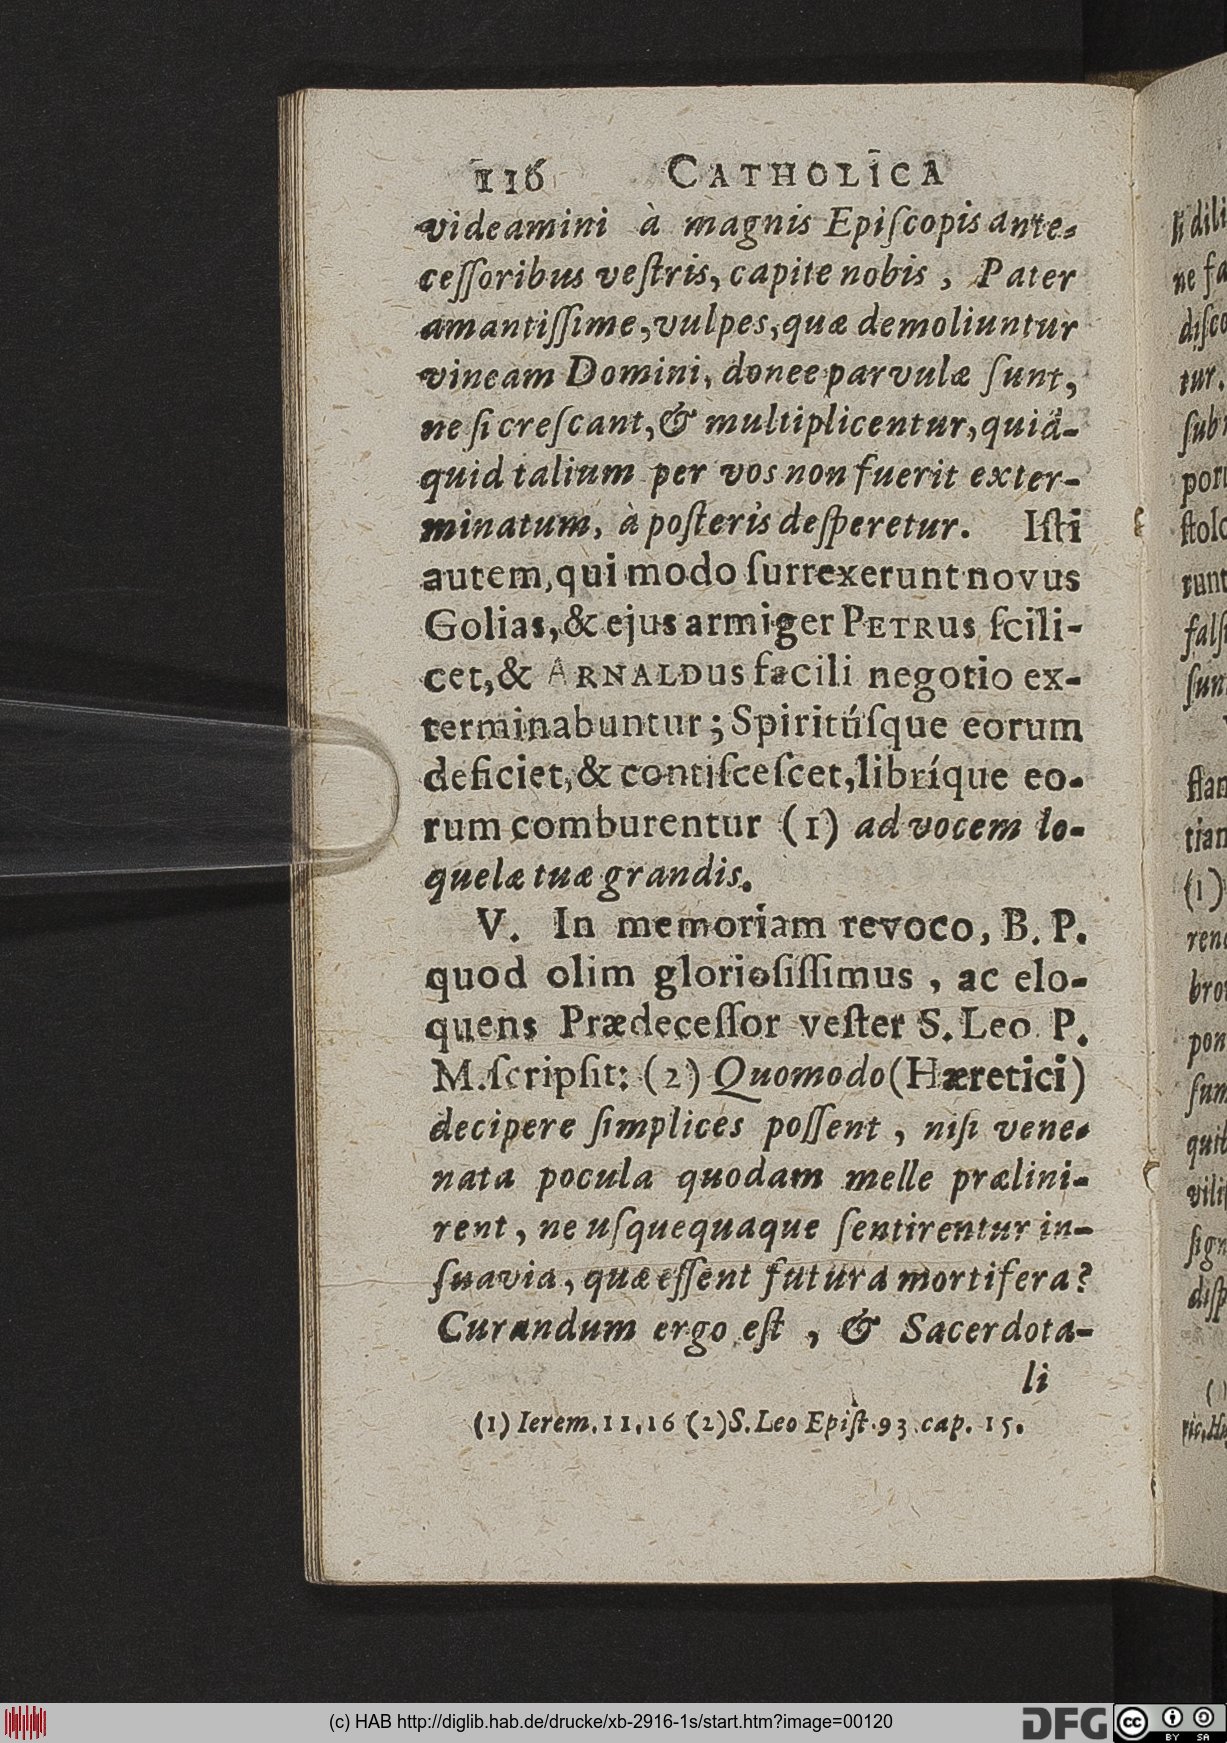 116 CATHOLICA
videamini à magnis Epiſcopis ante-
ceſſoribus veſtris, capite nobis, Pater
amantiſſime, vulpes, quæ demoliuntur
vineam Domini, donec parvulæ ſunt,
ne ſi creſcant, & multiplicentur, quid-
quid talium per vos non fuerit exter-
minatum, à poſteris deſperetur. Iſti
autem, qui modo ſurrexerunt novus
Golias, & ejus armiger PETRus ſcili-
cet, & ARNALDus facili negotio ex-
terminabuntur; Spiritúſque eorum
deficiet, & contiſceſcet, libríque eo-
rum comburentur (1) ad vocem lo-
quelæ tuæ grandis.
V. In memoriam revoco, B. P.
quod olim glorioſiſſimus, ac elo-
quens Prædeceſſor veſter S. Leo P.
M. ſcripſit: (2) Quomodo (Hæretici)
decipere ſimplices poſſent, niſi vene-
nata pocula quodam melle prælini-
rent, ne uſquequaque ſentirentur in-
ſuavia, quæ eſſent futura mortifera?
Curandum ergo eſt, & Sacerdota-
li
(1) Ierem. 11, 16 (2) S. Leo Epiſt. 93. cap. 15.
(c) HAB http://diglib.hab.de/drucke/xb-2916-1s/start.htm?image=00120
DFG
cc BY SA